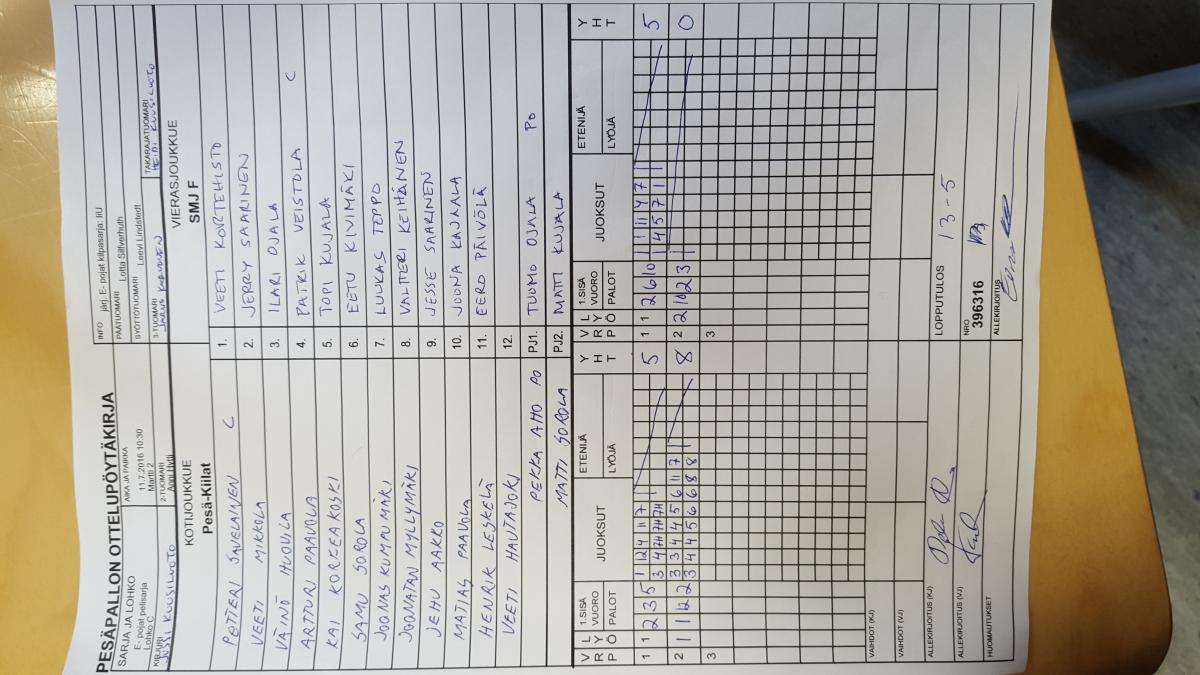 PESÄPALLON OTTELUPÖYTÄKIRJA
SARJA JA LOHKO
E- pojat pelisarja
Lohko C
AIKA JA PAIKKA
11.7.2016 10:30
Martti 2
INFO järj. E- pojat kilpasarja: IiU
PÄÄTUOMARI Lotta Silfverhuth
SYÖTTÖTUOMARI Leevi Lindstedt
KIRJURI
JUSSI KUUSILUOTO
2-TUOMARI
Anni Hytti
3-TUOMARI
TAKARAJATUOMARI
HEIDI KUUSILUOTO
KOTIJOUKKUE
Pesä-Kiilat
VIERASJOUKKUE
SMJ F
PETTERI SAVELAINEN C 1. VEETI KORTEHISTO
VEETI MIKKOLA 2. JERRY SAARINEN
VÄINÖ HUOVILA 3. ILARI OJALA
ARTTURI PAAVOLA 4. PATRIK VEISTOLA C
KAI KORKEAKOSKI 5. TOPI KUJALA
SAMU SOROLA 6. EETU KIVIMÄKI
JOONAS KUMPUMÄKI 7. LUUKAS TEPPO
JOONATAN MYLLYMÄKI 8. VALTTERI KEIHÄNEN
JEHU AAKKO 9. JESSE SAARINEN
MATIAS PAAVOLA 10. JOONA KAJAALA
HENRIK LESKELÄ 11. EERO PÄIVÖLÄ
VEETI HAUTAJOKI 12.
PEKKA AHO PO PJ1. TUOMO OJALA PO
MATTI SOROLA PJ2. MATTI KUJALA
V R P L Y Ö 1.SISÄ VUORO PALOT JUOKSUT ETENIJÄ LYÖJÄ Y H T V R P L Y Ö 1.SISÄ VUORO PALOT JUOKSUT ETENIJÄ LYÖJÄ Y H T
1 1 2 3 5 1 12 4 11 7 5 1 1 2 6 10 1 1 11 4 7 5
3 4 7 11 7 11 7 11 1 4 5 7 1 1
2 1 1 12 2 3 3 4 4 5 6 11 7 8 2 2 10 2 3 0
3 4 4 5 6 6 8 8
3 3
VAIHDOT (KJ)
VAIHDOT (VJ)
ALLEKIRJOITUS (KJ)
LOPPUTULOS 13 - 5
ALLEKIRJOITUS (VJ)
NRO
396316
HUOMAUTUKSET
ALLEKIRJOITUS